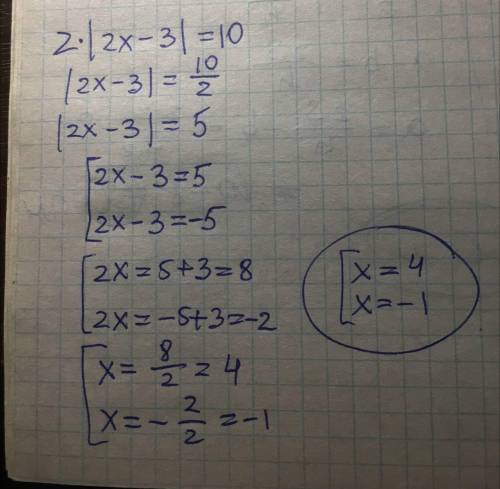 2·|2x-3|=10
|2x-3|=10/2
|2x-3|=5
[2x-3=5
2x-3=-5
[2x=5+3=8
2x=-5+3=-2
[x=8/2=4
x=-2/2=-1
[x=4
x=-1